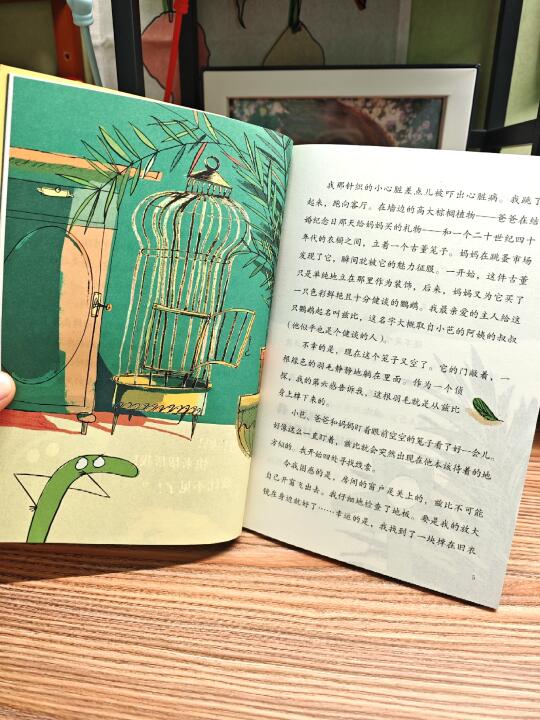 我那针织的小心脏差点儿被吓出心脏病。我跳了
起来，跑向客厅。在墙边的高大棕榈植物——爸爸在结
婚纪念日那天给妈妈买的礼物——和一个二十世纪四十
年代的衣橱之间，立着一个古董笼子。妈妈在跳蚤市场
发现了它，瞬间就被它的魅力征服。一开始，这件古董
只是单纯地立在那里作为装饰，后来，妈妈又为它买了
一只色彩鲜艳且十分健谈的鹦鹉。我最亲爱的主人给这
只鹦鹉起名叫兹比，这名字大概取自小芭的阿姨的叔叔
（他似乎也是个健谈的人）。
不幸的是，现在这个笼子又空了。它的门敞着，一
根绿色的羽毛静静地躺在里面。作为一个侦
探，我的第六感告诉我，这根羽毛就是从兹比
身上掉下来的。
小芭、爸爸和妈妈盯着眼前空空的笼子看了好一会儿。
好像这么一直盯着，兹比就会突然出现在他本该待着的地
方似的。我开始四处寻找线索。
令我困惑的是，房间的窗户是关上的，兹比不可能
自己开窗飞出去。我仔细地检查了地板。要是我的放大
镜在身边就好了……幸运的是，我找到了一块掉在旧衣
5